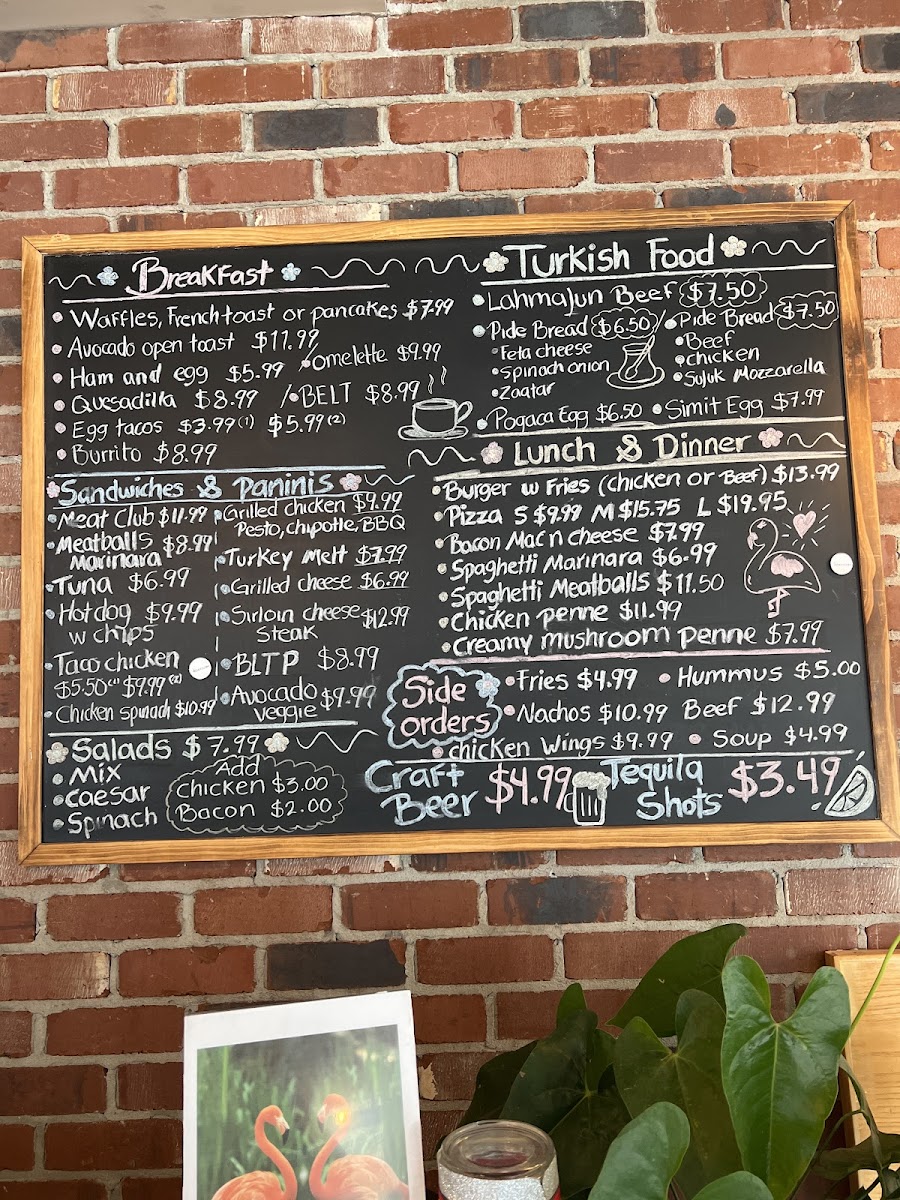 Breakfast
Waffles, French toast or pancakes $7.99
Avocado open toast $11.99
Ham and egg $5.99 / Omelette $9.99
Quesadilla $8.99 / BELT $8.99
Egg tacos $3.99 (1) $5.99 (2)
Burrito $8.99
Sandwiches & Paninis
Meat Club $11.99
Meatballs $8.99
Marinara
Tuna $6.99
Hot dog $9.99
w chips
Taco chicken
$5.50 (1) $9.99 (2)
Chicken spinach $10.99
Grilled chicken $9.99
Pesto, chipotle, BBQ
Turkey Melt $7.99
Grilled cheese $6.99
Sirloin cheese $12.99
Steak
BLTP $8.99
Avocado $9.99
veggie
Salads $7.99
Mix
Caesar
Spinach
Add
Chicken $3.00
Bacon $2.00
Turkish Food
Lahmajun Beef $7.50
Pide Bread $6.50 / Pide Bread $7.50
Feta cheese
Spinach onion
Zaatar
Beef
chicken
Sujuk Mozzarella
Pogaca Egg $6.50 Simit Egg $7.99
Lunch & Dinner
Burger w Fries (chicken or Beef) $13.99
Pizza S $9.99 M $15.75 L $19.95
Bacon Mac n cheese $7.99
Spaghetti Marinara $6.99
Spaghetti Meatballs $11.50
Chicken penne $11.99
Creamy mushroom penne $7.99
Side
orders
Fries $4.99 Hummus $5.00
Nachos $10.99 Beef $12.99
chicken Wings $9.99 Soup $4.99
Craft
Beer $4.99
Tequila
Shots $3.49